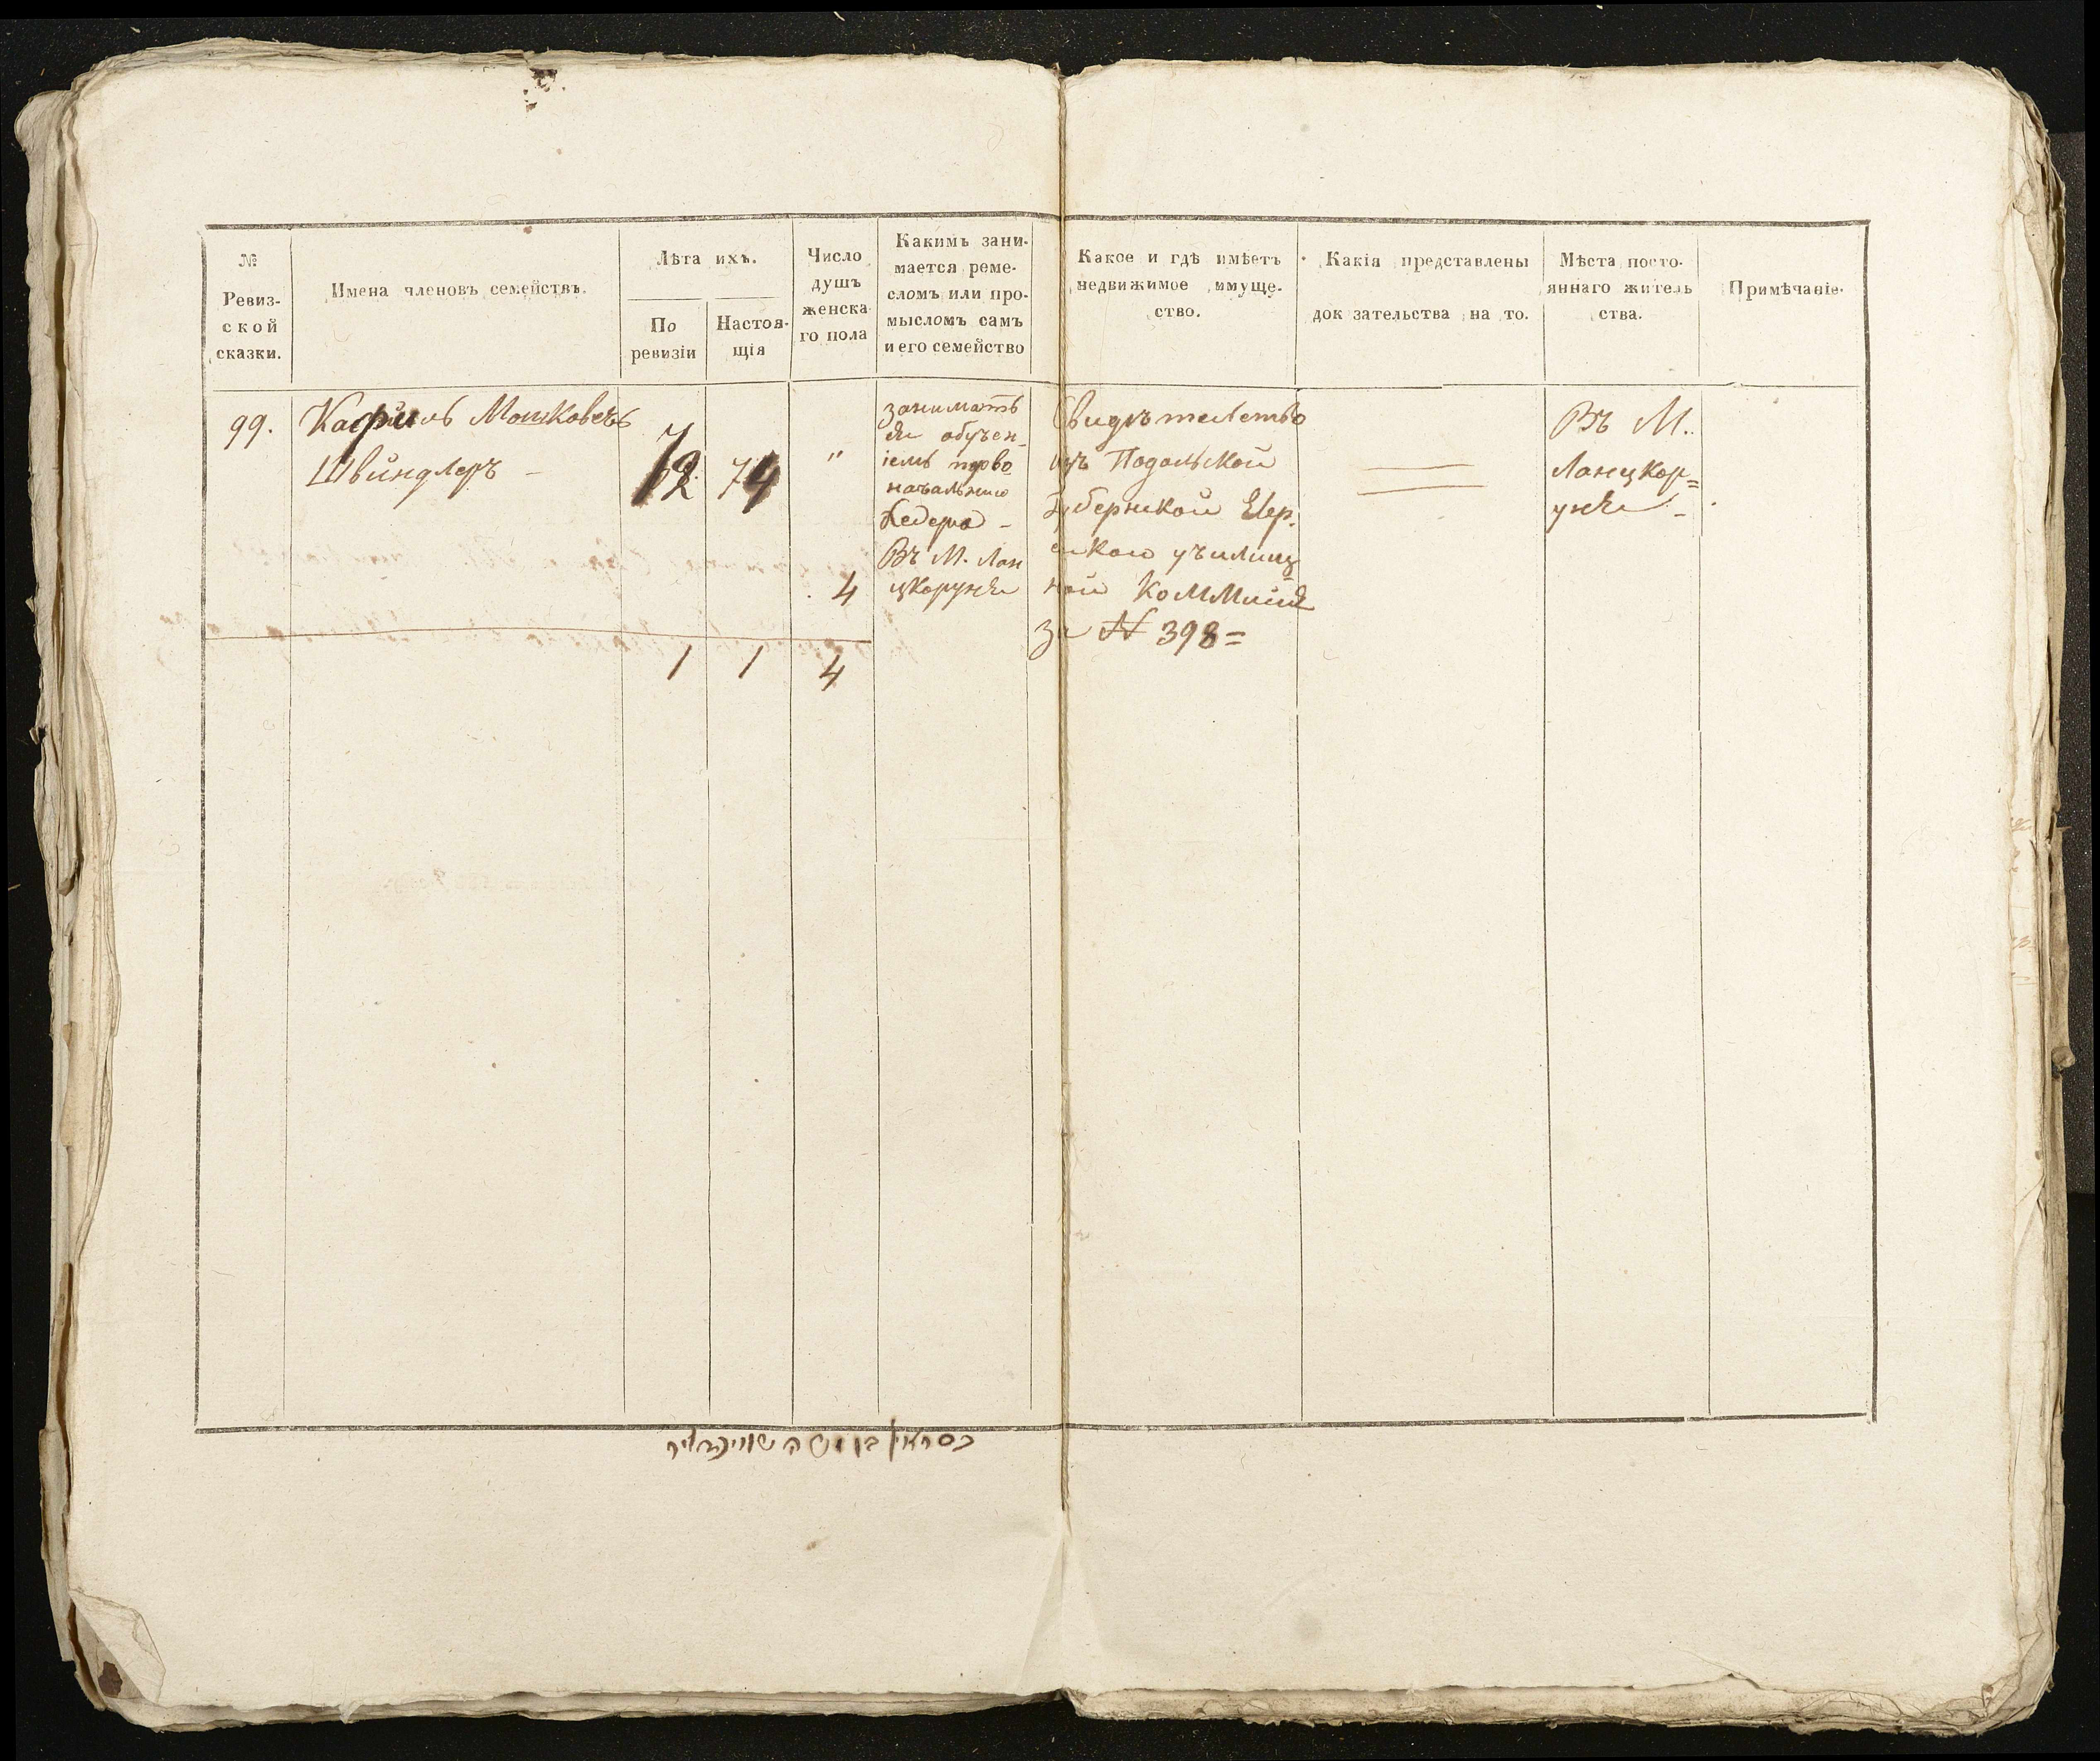 №
Ревиз-
ской
сказки.
Имена членовъ семействъ.
Лѣта ихъ.
По
ревизіи
Настоя-
щія
Число
душъ
женска
го пола
Какимъ зани-
мается реме-
сломъ или про-
мысломъ самъ
и его семейство
Какое и гдѣ имѣетъ
недвижимое имуще-
ство.
Какія представлены
док зательства на то.
Мѣста посто-
яннаго житель
ства.
Примѣчаніе.
99.
Мошковечъ
Швиндлеръ -
72
74
"
4
заниматъ
ся обучен-
іемъ перво
начальнаго
Хедера -
Въ М. Лан
цкорунѣ
Свидѣтелство
изъ Подольской
Губернской Евр.
ейкой училищ
ной Коммисіи
за № 398=
Въ М.
Ланцкор=
унѣ -
1 1 4
בן משה שווינדליר